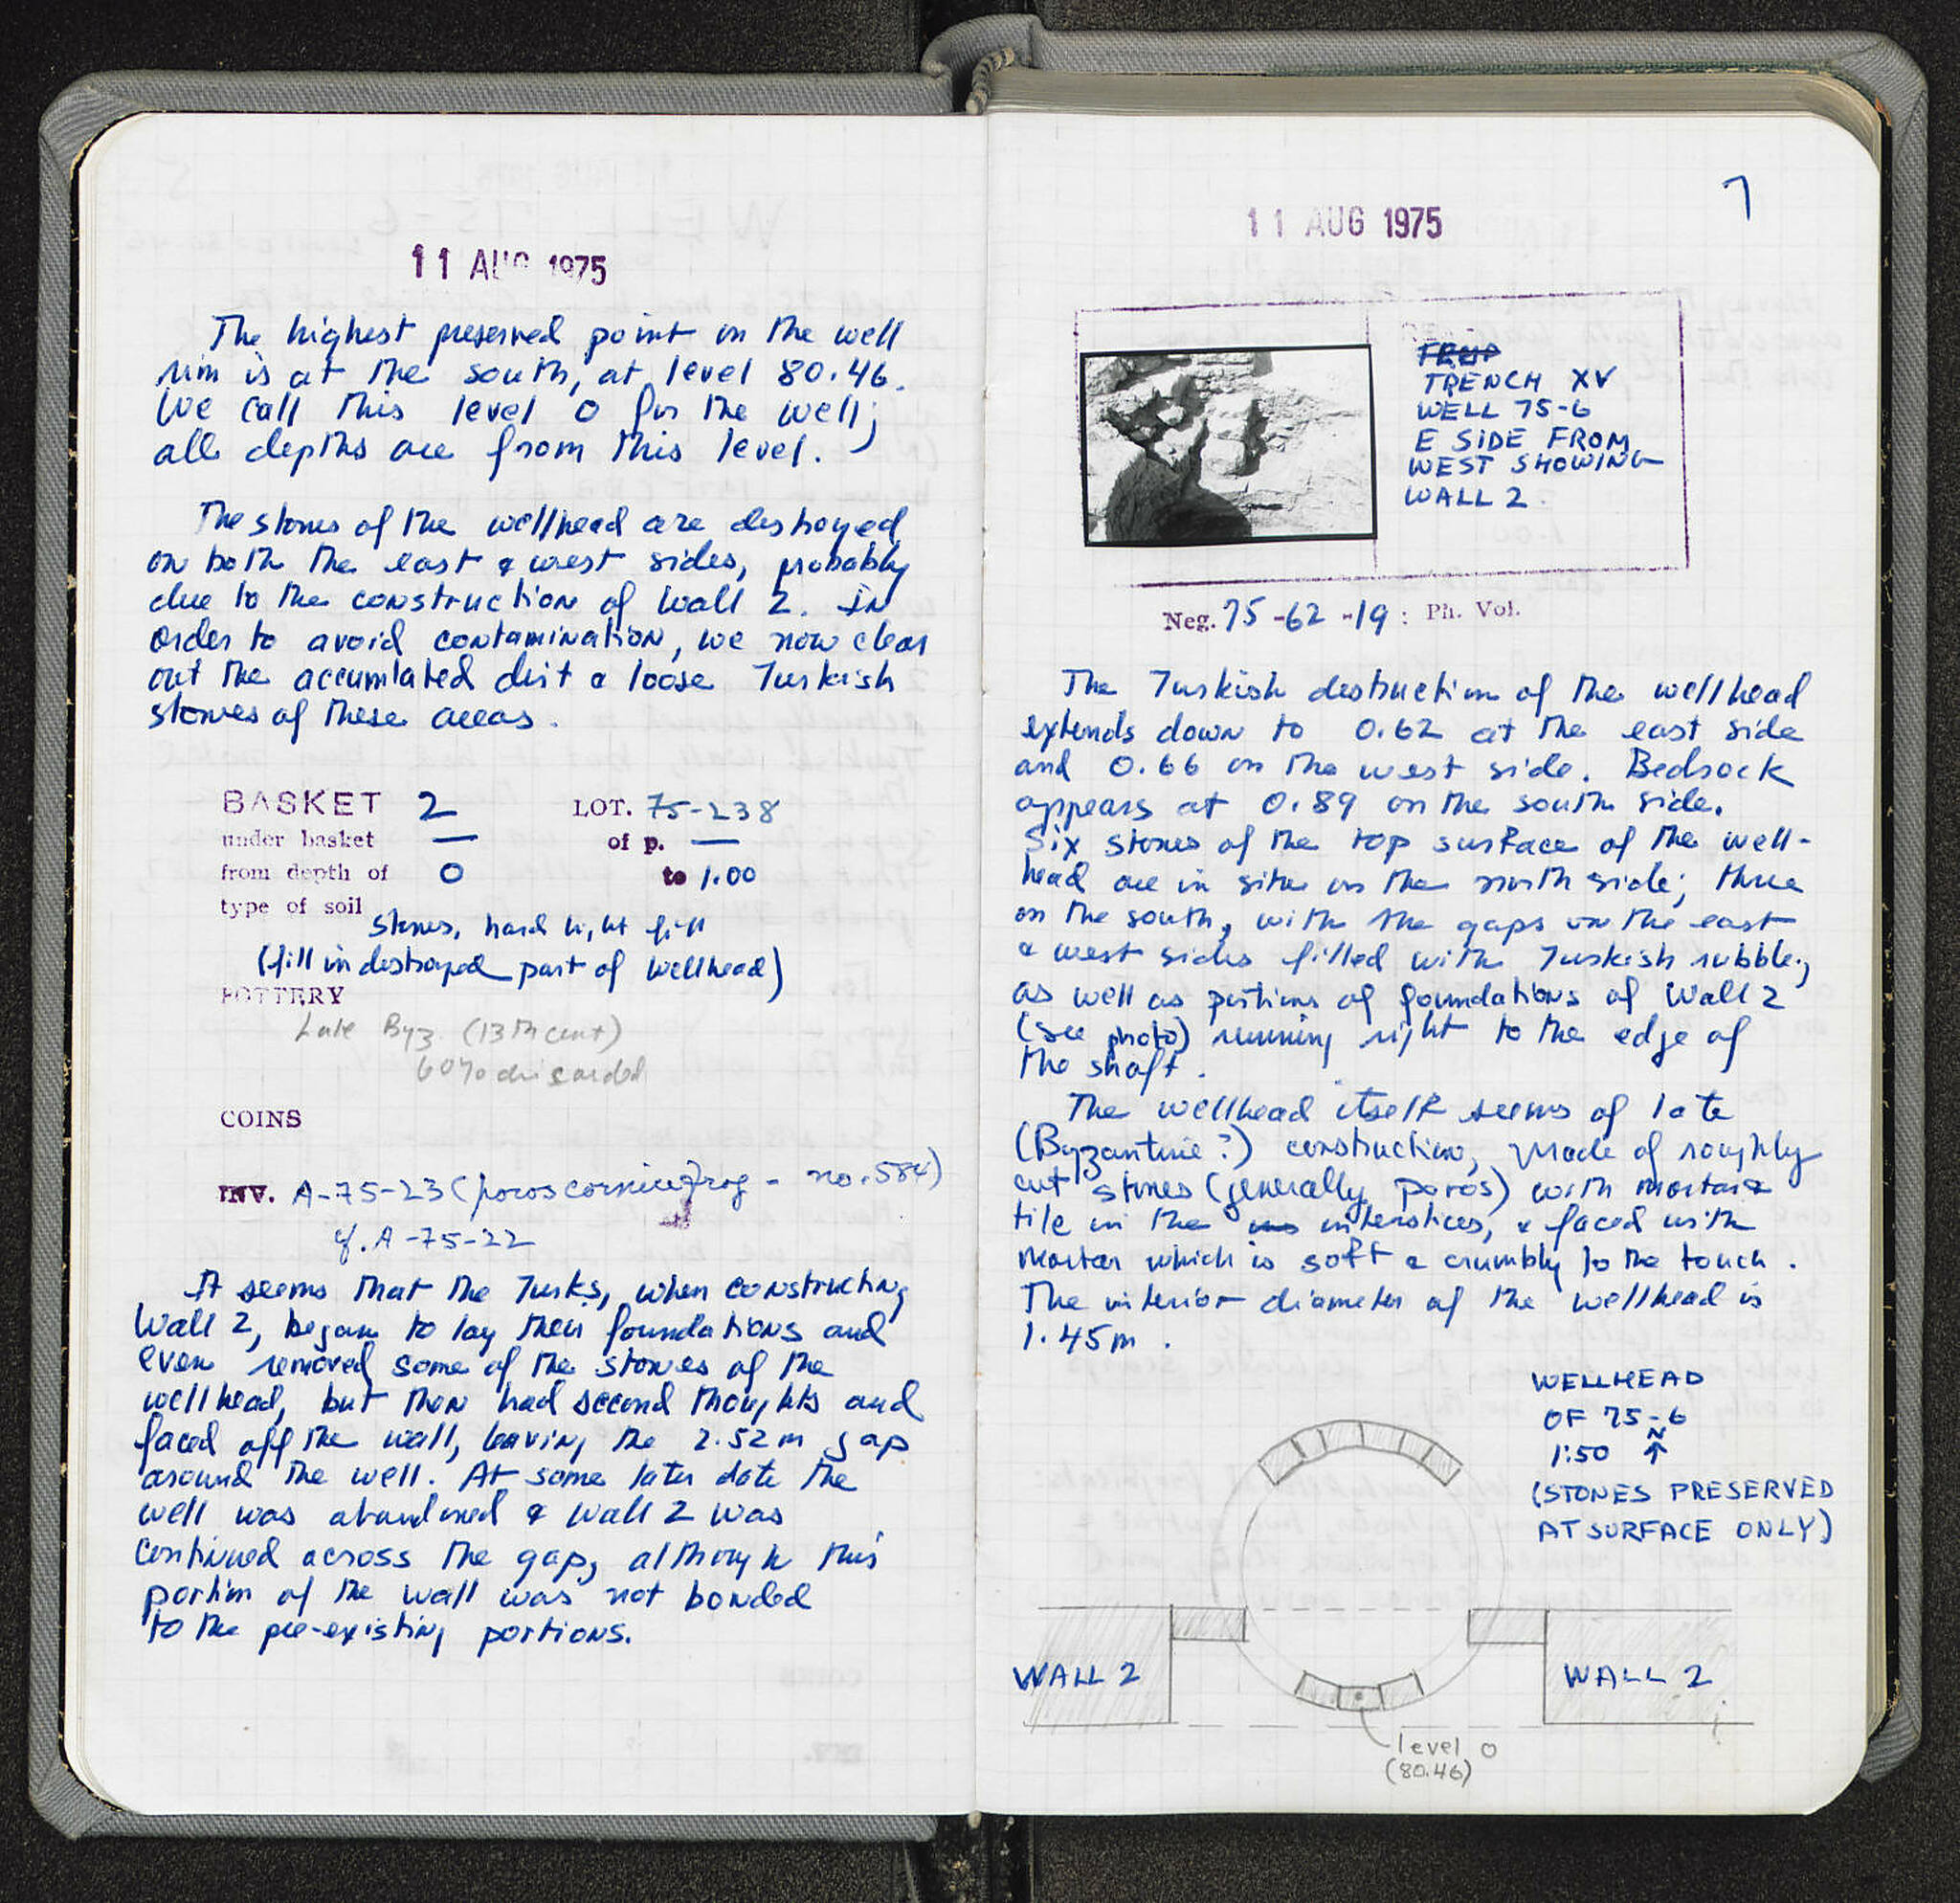 11 AUG 1975
The highest preserved point on the well
rim is at the south, at level 80.46.
We call this level 0 for the well;
all depths are from this level.
The stones of the wellhead are destroyed
on both the east & west sides, probably
due to the construction of Wall 2. In
order to avoid contamination, we now clear
out the accumulated dirt & loose Turkish
stones of these areas.
BASKET 2 LOT. 75-238
under basket — of p. —
from depth of 0 to 1.00
type of soil
stones, hard light fill
(fill in destroyed part of wellhead)
POTTERY
Late Byz. (13th cent)
60% discarded
COINS
INV. A-75-23 (poros cornice frag - no. 584)
cf. A-75-22
It seems that the Turks, when constructing
Wall 2, began to lay their foundations and
even removed some of the stones of the
wellhead, but then had second thoughts and
faced off the wall, leaving the 2.52m gap
around the well. At some later date the
well was abandoned & Wall 2 was
continued across the gap, although this
portion of the wall was not bonded
to the pre-existing portions.
7
11 AUG 1975
TRENCH XV
WELL 75-6
E SIDE FROM
WEST SHOWING
WALL 2
Neg. 75-62-19: Ph. Vol.
The Turkish destruction of the wellhead
extends down to 0.62 at the east side
and 0.66 on the west side. Bedrock
appears at 0.89 on the south side.
Six stones of the top surface of the well-
head are in situ on the north side; three
on the south, with the gaps on the east
& west sides filled with Turkish rubble,
as well as portions of foundations of Wall 2
(see photo) running right to the edge of
the shaft.
The wellhead itself seems of late
(Byzantine?) construction, made of roughly
cut stones (generally poros) with mortar &
tile in the interstices, & faced with
mortar which is soft & crumbly to the touch.
The interior diameter of the wellhead is
1.45m.
WELLHEAD
OF 75-6
N
1:50 ↑
(STONES PRESERVED
AT SURFACE ONLY)
WALL 2
WALL 2
level 0
(80.46)